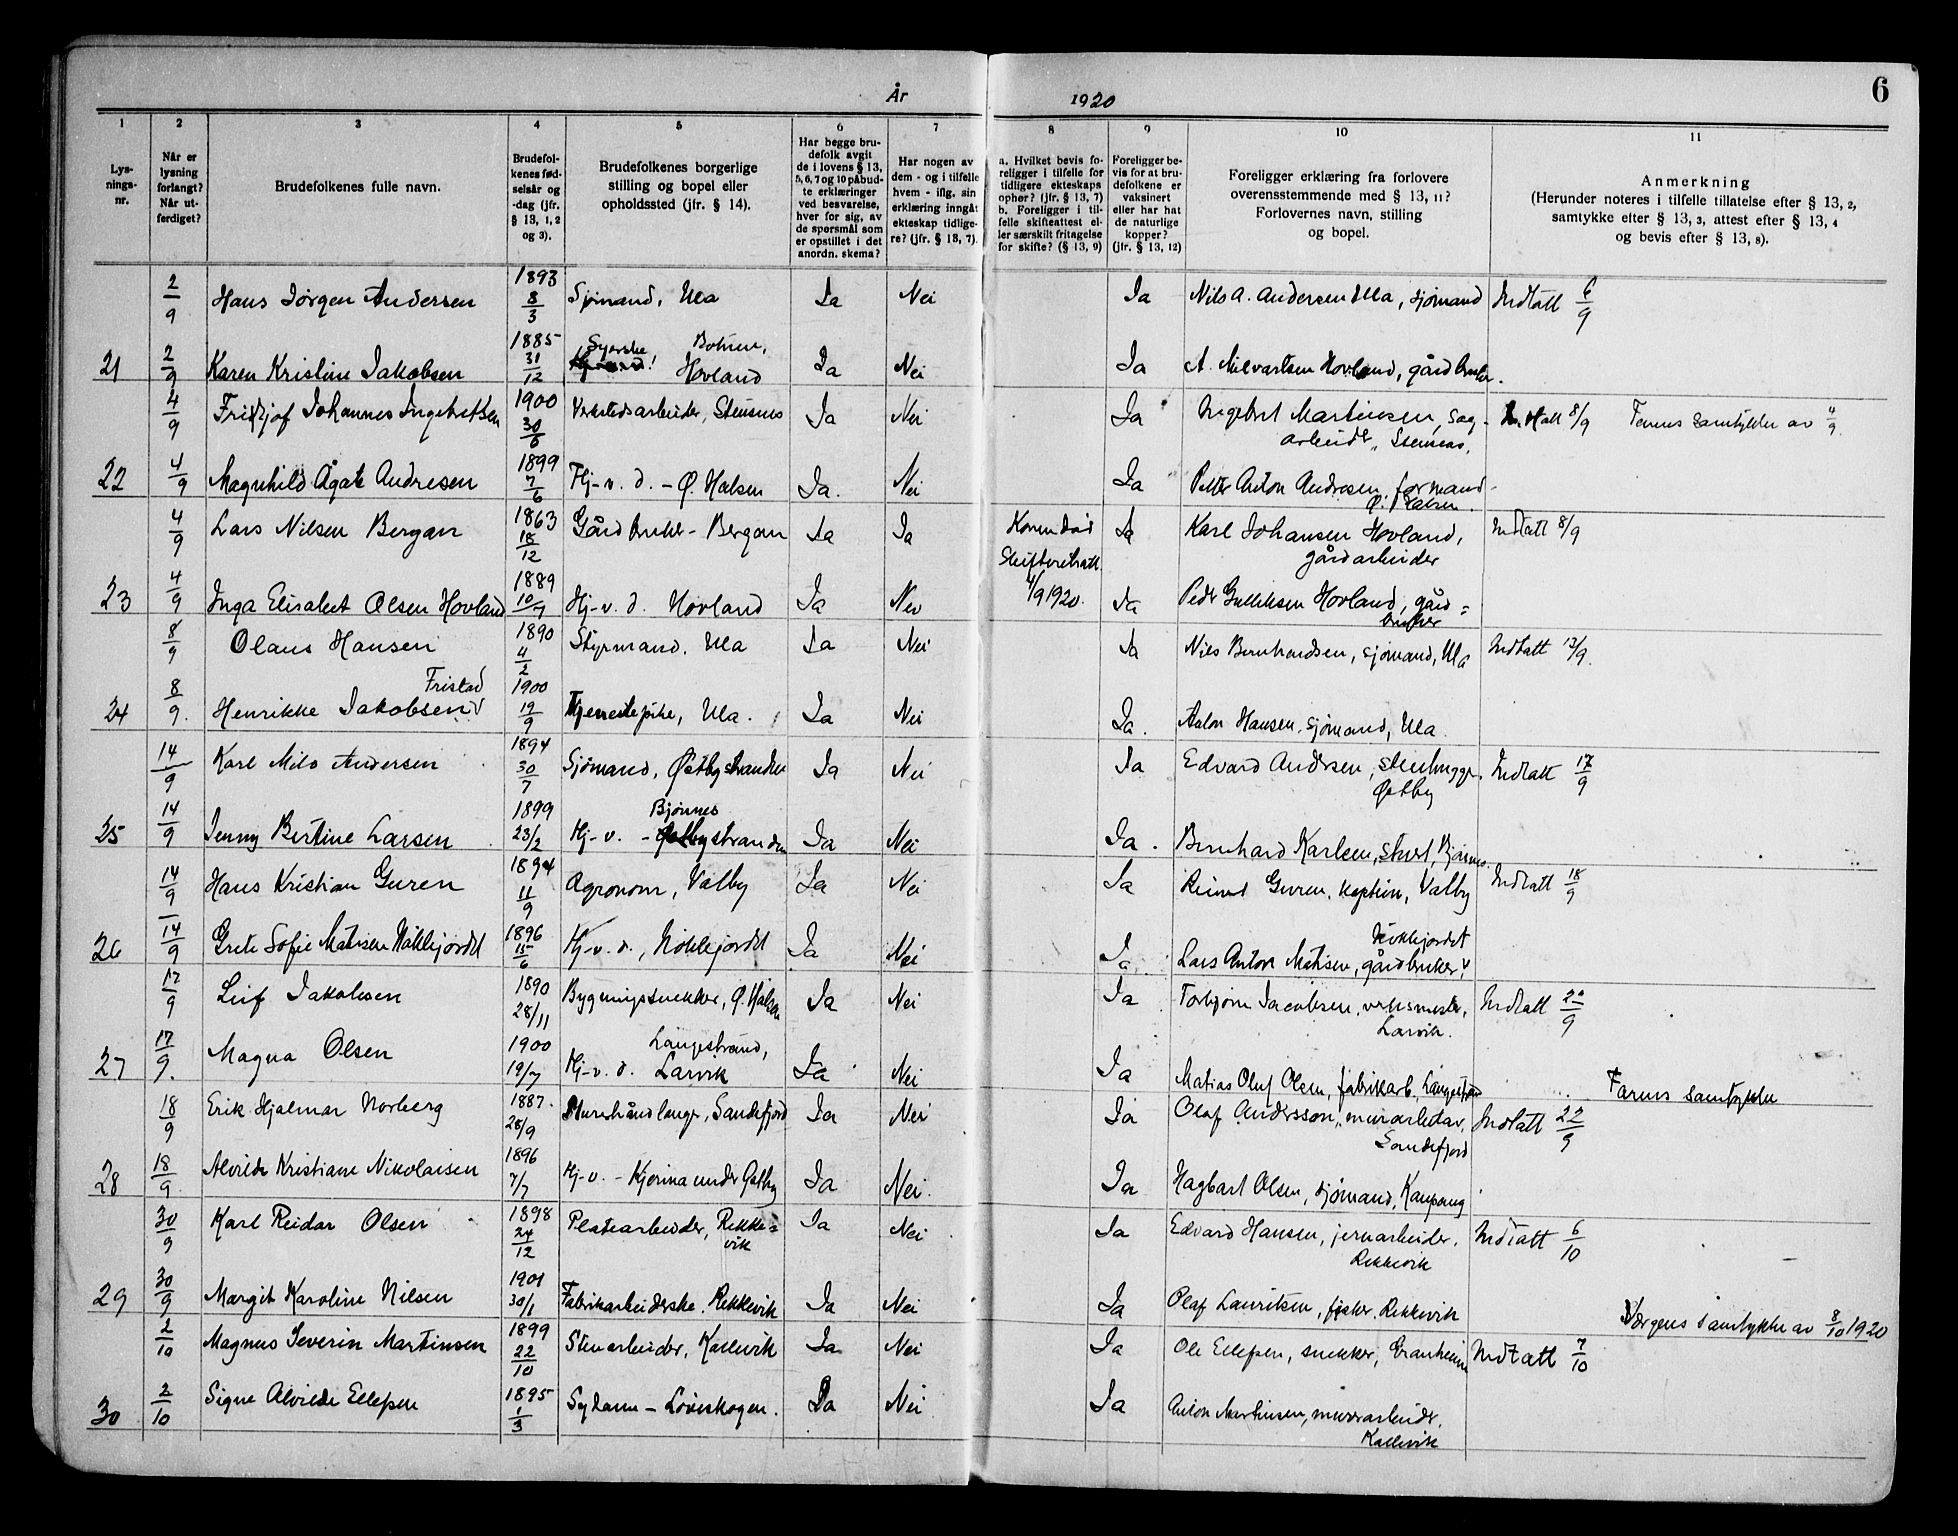 År 1920
6
1 2 3 4 5 6 7 8 9 10 11
Lys-
nings-
nr.
Når er
lysning
forlangt?
Når ut-
ferdiget?
Brudefolkenes fulle navn.
Brudefol-
kenes fød-
selsår og
-dag (jfr.
§ 13, 1, 2
og 3).
Brudefolkenes borgerlige
stilling og bopel eller
opholdssted (jfr. § 14).
Har begge bru-
defolk avgit
de i lovens § 13,
5, 6, 7 og 10 påbud-
te erklæringer
ved besvarelse,
hver for sig, av
de spørsmål som
er opstillet i det
anordn. skema?
Har nogen av
dem - og i tilfelle
hvem - iflg. sin
erklæring inngåt
ekteskap tidlige-
re? (jfr. § 13, 7).
a. Hvilket bevis fo-
religger i tilfelle for
tidligere ekteskaps
ophør? (jfr. § 13, 7)
b. Foreligger i til-
felle skifteattest el-
ler særskilt fritagelse
for skifte? (§ 13, 9)
Foreligger be-
vis for at bru-
defolkene er
vaksinert
eller har hat
de naturlige
kopper?
(jfr. § 13, 12)
Foreligger erklæring fra forlovere
overensstemmende med § 13, 11?
Forlovernes navn, stilling
og bopel.
Anmerkning
(Herunder noteres i tilfelle tillatelse efter § 13, 2,
samtykke efter § 13, 3, attest efter § 13, 4
og bevis efter § 13, 8).
2/9 Hans Jørgen Andersen 1893 8/3 Sjømand, Ula Ja Nei Ja Nils A. Andersen Ula, sjømand Indtatt 6/9
21 2/9 Karen Kristine Jakobsen 1885 31/12 Syerske Hovland Ja Nei Ja A. Hovland, gårdbruker.
4/9 Fridtjof Johannes Ingebretsen 1900 30/6 Verkstedsarbeider, Stensnes Ja Nei Ja Ingebret Martinsen, sag-
arbeider, Stensnes. Indtatt 8/9 Farens samtykke av 4/9.
22 4/9 Magnhild Ågate Andresen 1899 7/6 Hj-v. d. - Ø. Halsen Ja. Nei Ja Petter Anton Andresen, formand
Ø. Halsen.
4/9 Lars Nilsen Bergan 1863 18/12 Gårdbruker - Bergan Ja Ja Konen død
Skifteretsatt.
4/9 1920. Ja Karl Johansen Hovland,
gårdarbeider Indtatt 8/9
23 4/9 Inga Elisabet Olsen Hovland 1889 10/9 Hj-v. d. Hovland Ja Nei Ja Peder Gulliksen Hovland, gård=
bruker
8/9 Olaus Hansen 1890 4/2 Styrmand, Ula Ja Nei Ja Nils Bernhardsen, sjømand, Ula Indtatt 13/9.
24 8/9. Henrikke Jakobsen Fristad 1900 19/9 Tjenestepike, Ula. Ja Nei Ja. Anton Hansen, sjømand, Ula.
14/9 Karl Milo Andersen 1894 30/7 Sjømand, Østbystranden Ja Nei Ja Edvard Andersen, stenhugger,
Østby Indtatt 17/9
25 14/9 Jenny Bertine Larsen 1899 23/2 Hj-v. - Bjønnes Østbystranden Ja Nei Ja. Bernhard Karlsen, Bjønnes.
14/9 Hans Kristian Guren 1894 11/9 Agronom, Valby Ja Nei Ja Guren, kaptein, Valby Indtatt 18/9
26 14/9 Grete Sofie Matisen Nøklejordet 1896 15/6 Hj-v. d., Nøklejordet Ja Nei Ja Lars Anton Matisen, gårdbruker, Nøklejordet
17/9 Leif Jakobsen 1890 28/11 Bygningssnekker, Ø. Halsen Ja Nei Ja Torbjørn Jacobsen, verksmester,
Larvik. Indtatt 22/9
27 17/9. Magna Olsen 1900 19/7 Hj-v. d. Langestrand,
Larvik Ja Nei Ja Matias Oluf Olsen, fabrikarb., Langestrand Farens samtykke
18/9 Erik Hjalmar Norberg 1887. 28/9 Murehåndlanger, Sandefjord Ja Nei Ja Olaf Andersson, murarbeider,
Sandefjord Indtatt 22/9
28 18/9 Alvilde Kristiane Nikolaisen 1896 7/7 Hj-v. - Kjerina under Østby Ja Nei. Ja Hagbart Olsen, sjømand, Kaupang
30/9 Karl Reidar Olsen 1898 24/12 Platearbeider, Rekke=
vik Ja Nei Ja Edvard Hansen, jernarbeider.
Rekkevik Indtatt 6/10
29 30/9 Margit Karoline Nilsen 1901 30/1 Fabrikarbeiderske. Rekkevik Ja Nei Ja Olaf Lauritsen, fisker, Rekkevik Værgens samtykke av 8/10 1920
2/10 Magnus Severin Martinsen 1899 22/10 Stenarbeider, Kallevik Ja Nei Ja Ole Ellefsen, snekker, Granheim Indtatt 7/10
30 2/10 Signe Alvilde Ellefsen 1895 1/3 Sydame - Løveskogen. Ja Nei Ja Anton Martinsen, murarbeider.
Kallevik